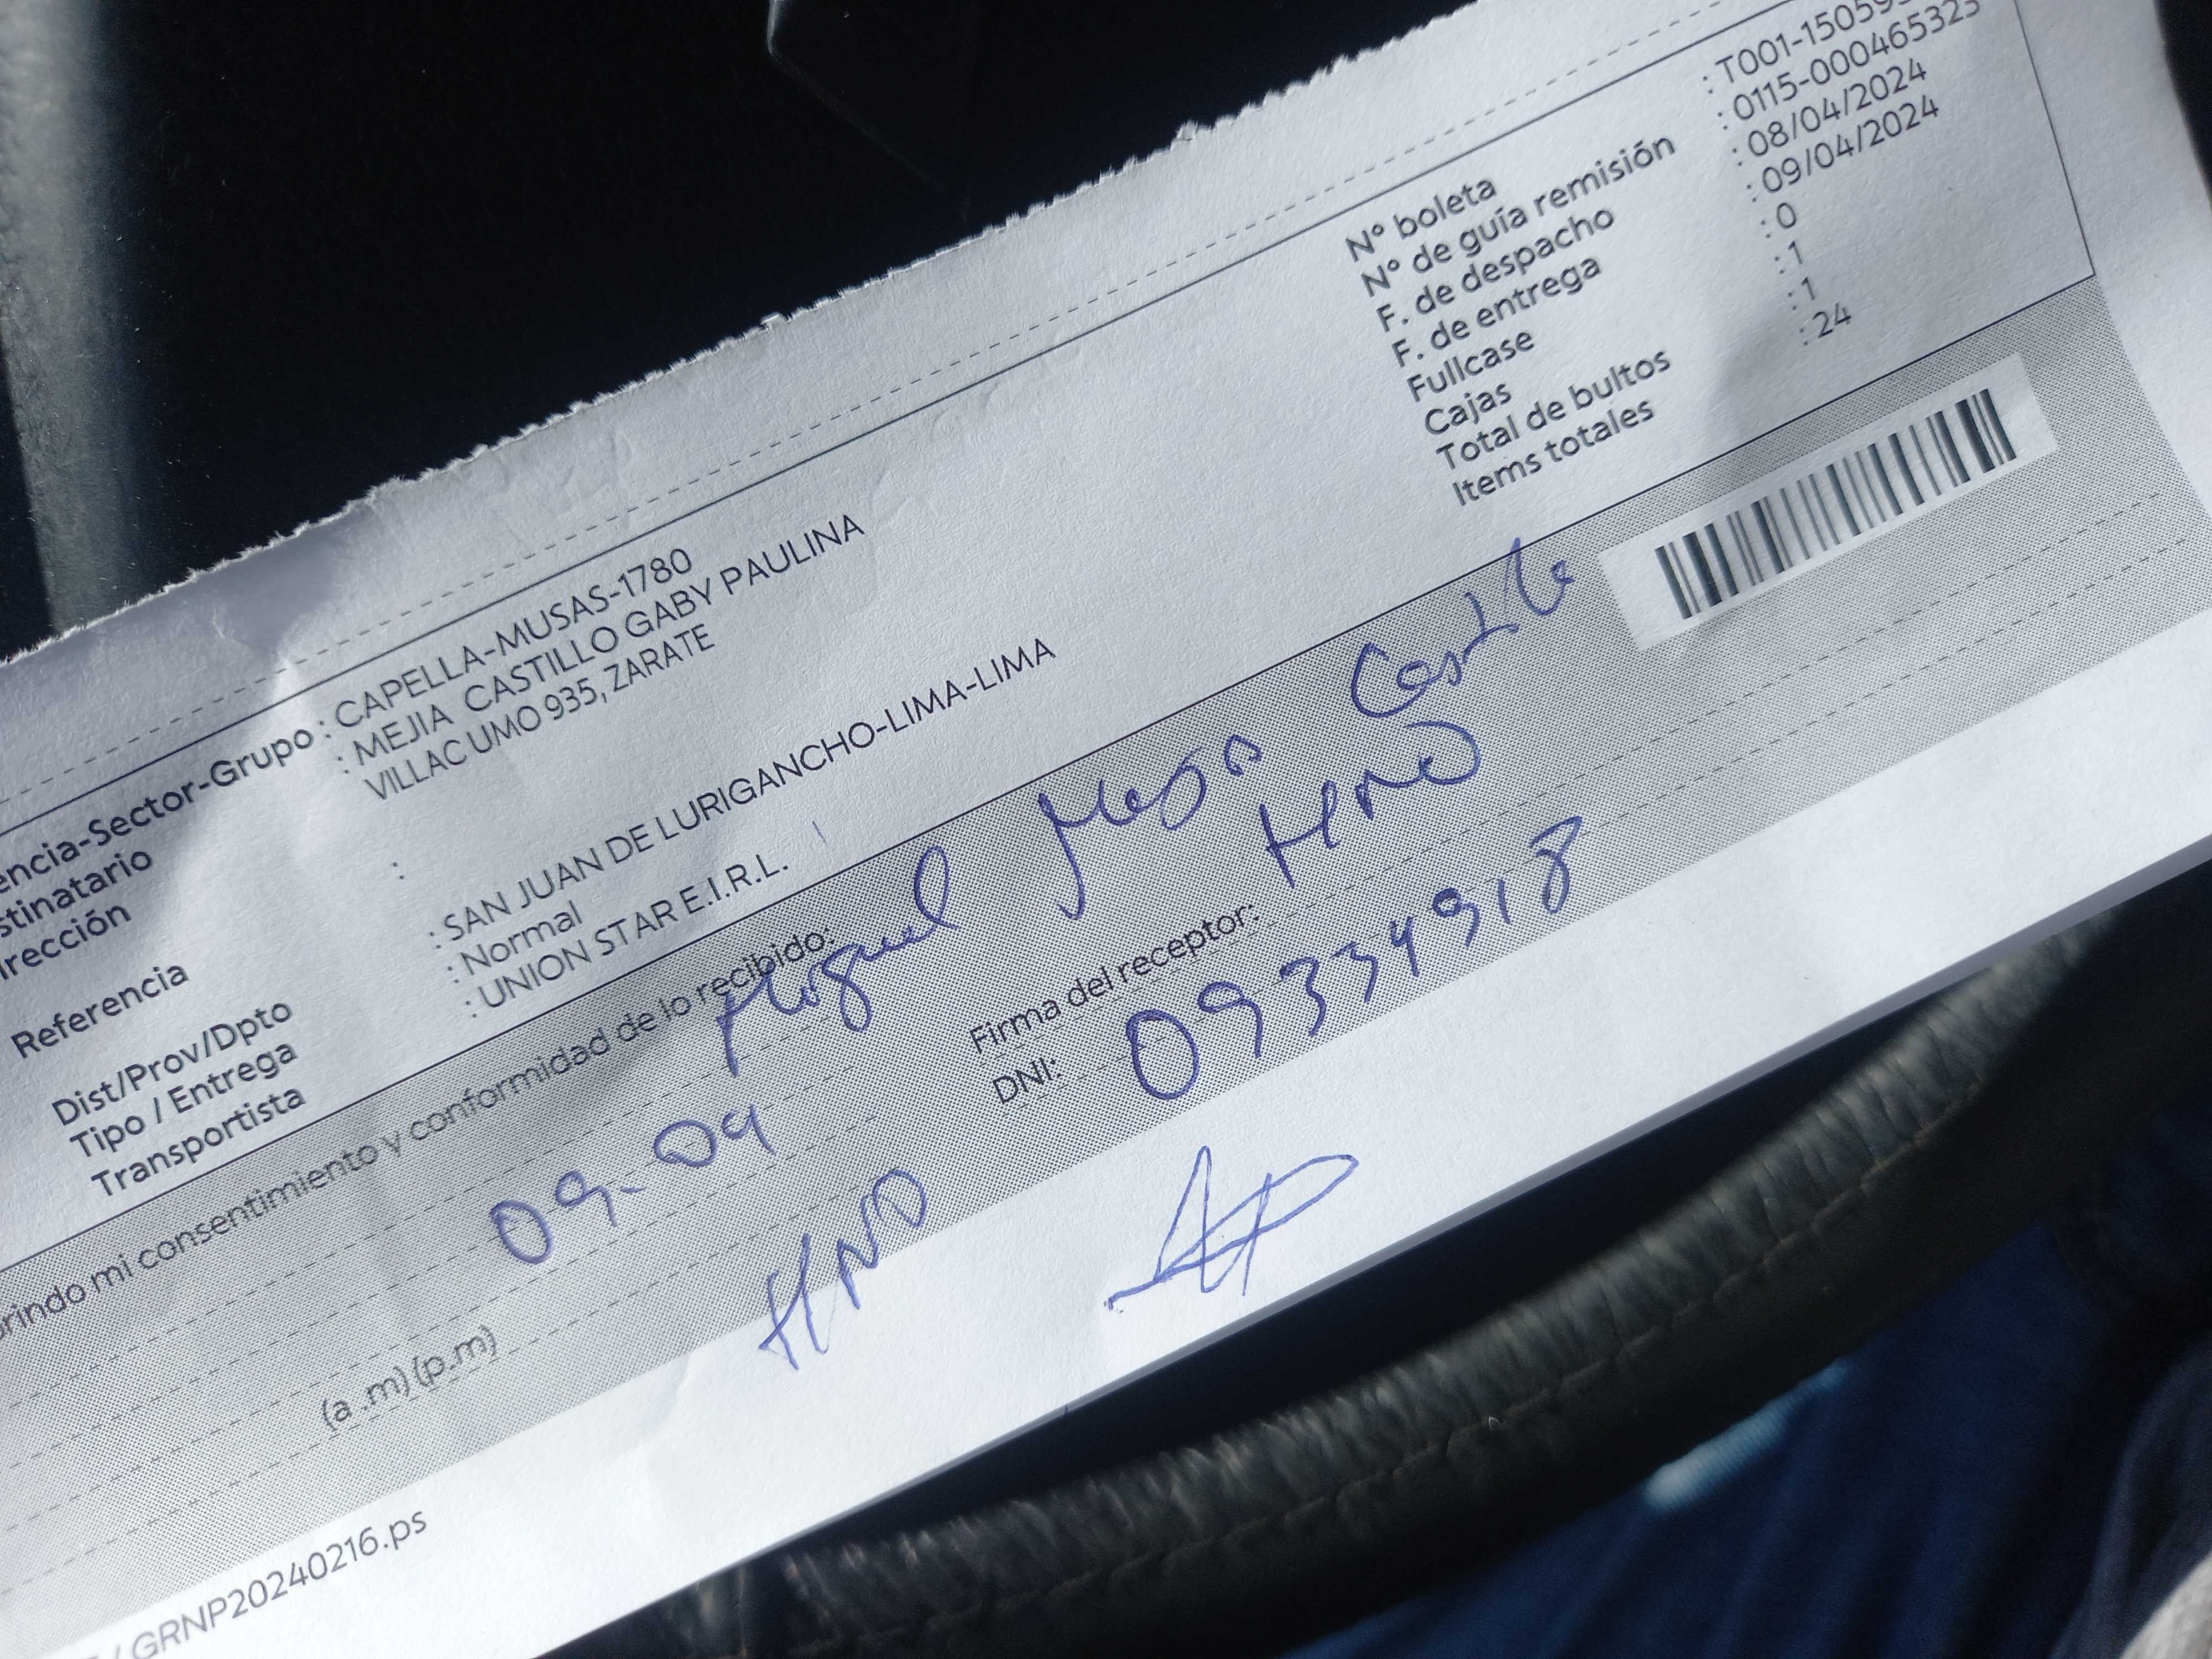 encia-Sector-Grupo : CAPELLA-MUSAS-1780
stinatario : MEJIA CASTILLO GABY PAULINA
irección VILLAC UMO 935, ZARATE
Referencia :
Dist/Prov/Dpto : SAN JUAN DE LURIGANCHO-LIMA-LIMA
Tipo / Entrega : Normal
Transportista : UNION STAR E.I.R.L.
N° boleta : T001-15059
N° de guía remisión : 0115-000465323
F. de despacho : 08/04/2024
F. de entrega : 09/04/2024
Fullcase : 0
Cajas : 1
Total de bultos : 1
Items totales : 24
rindo mi consentimiento y conformidad de lo recibido:
Miguel Castillo
HNO
09-04
Firma del receptor:
DNI: 09334918
HNO
(a .m) (p.m)
/ GRNP20240216.ps